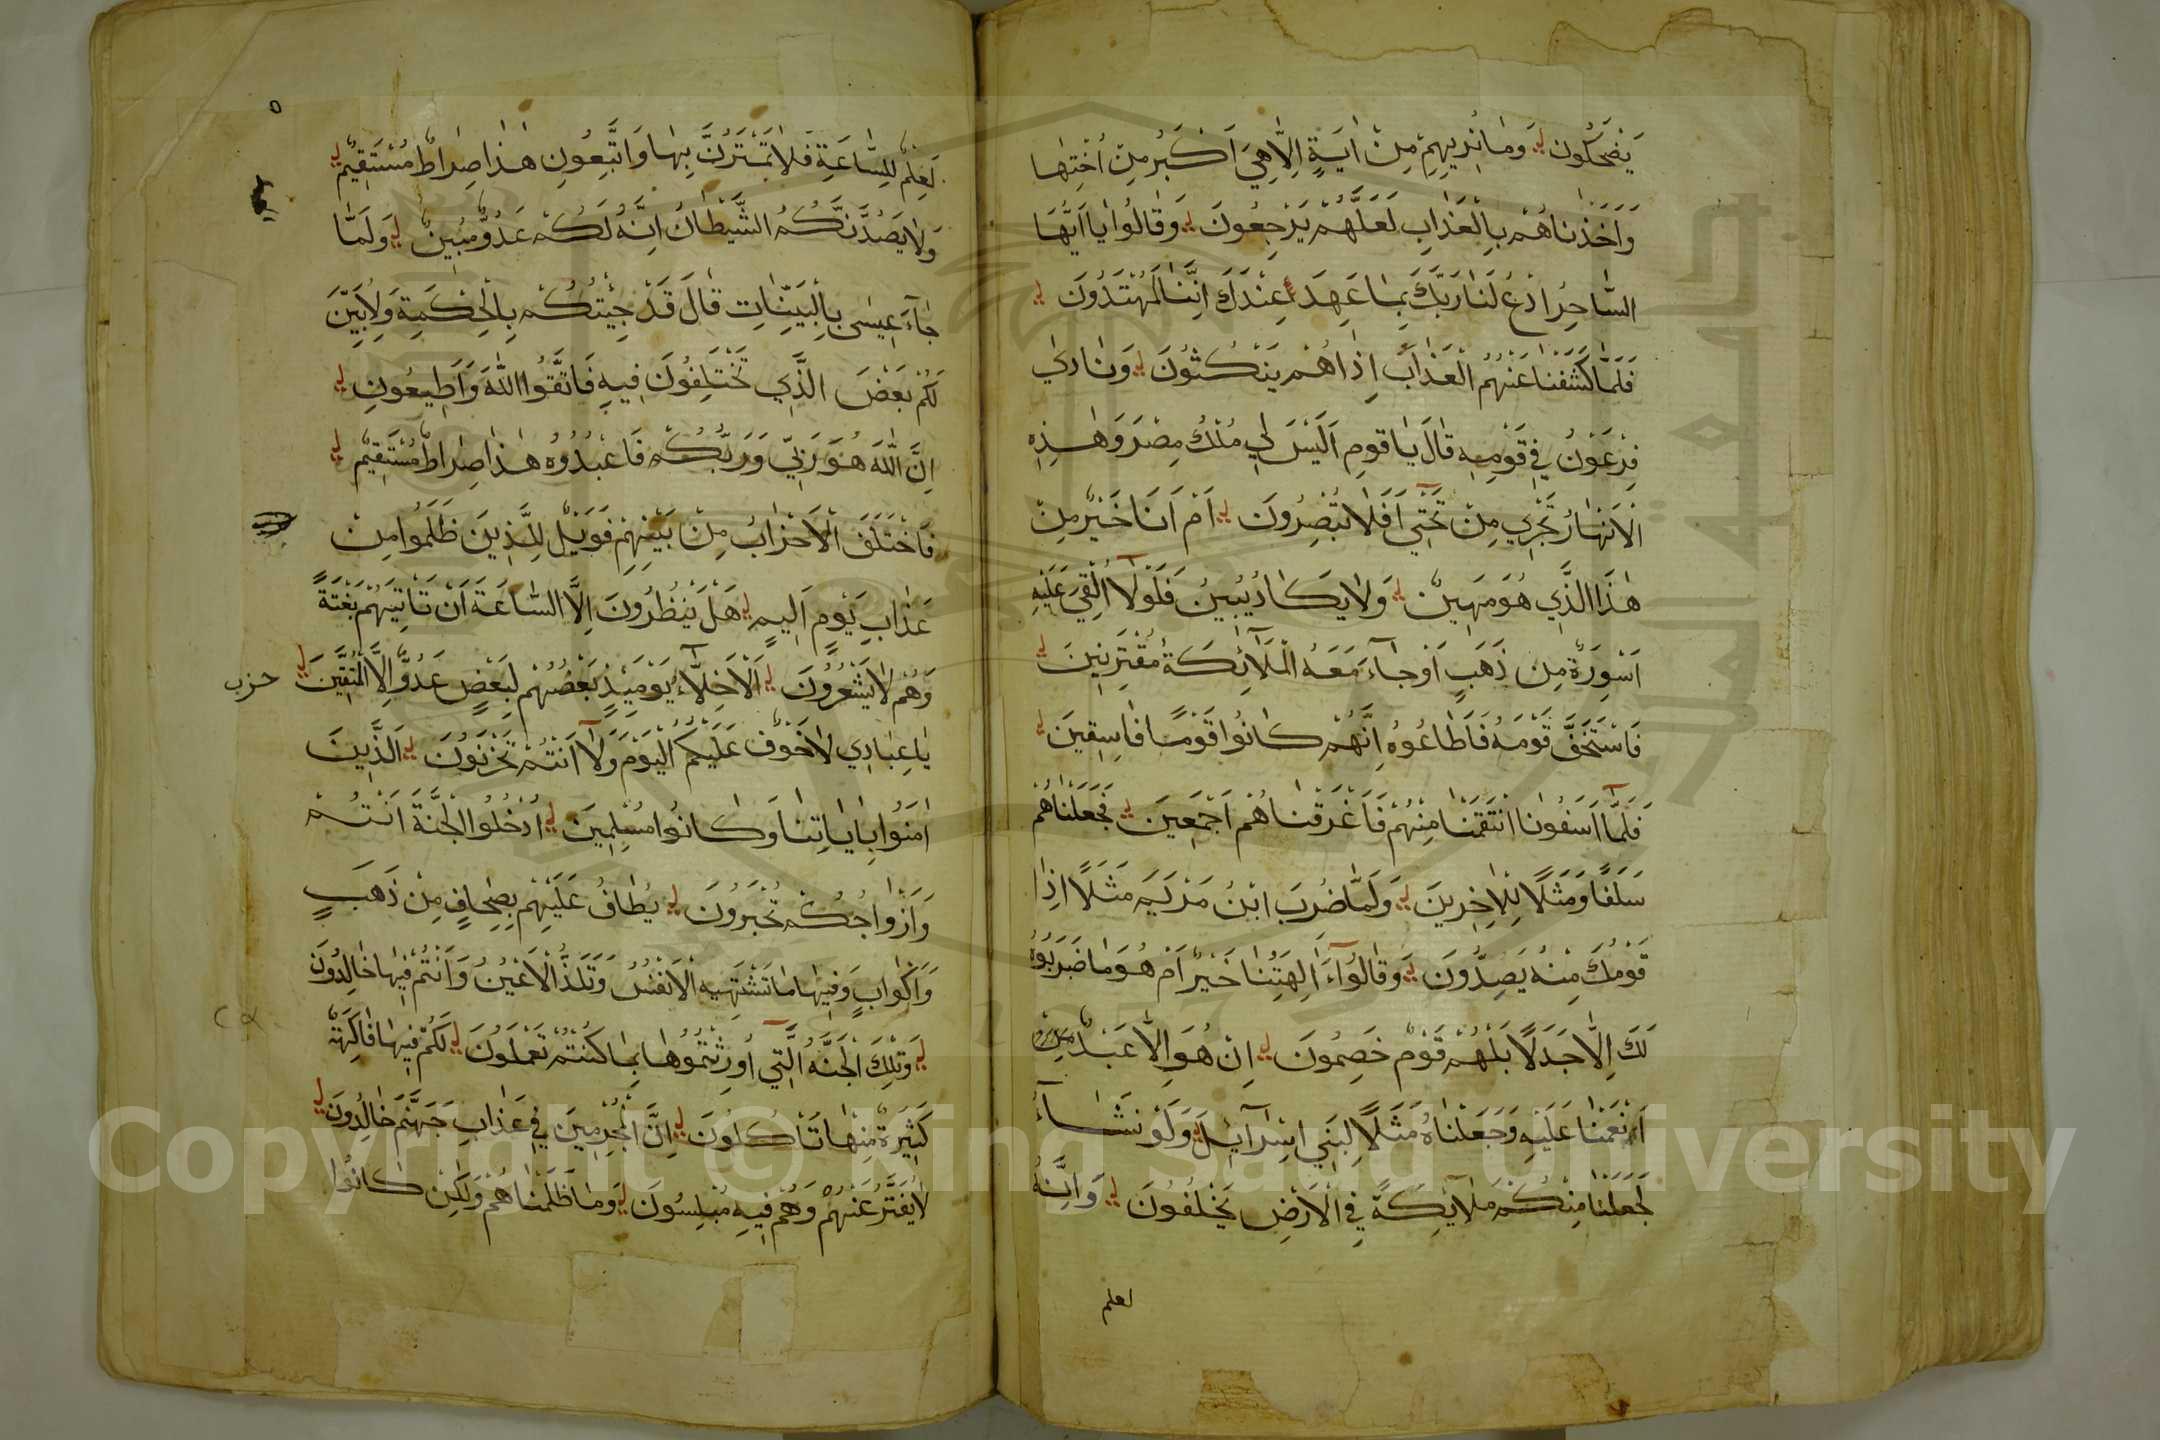 يَضْحَكُونَ وَمَا نُرِيهِمْ مِنْ اٰيَةٍ اِلَّا هِيَ اَكْبَرُ مِنْ اُخْتِهَا
وَاَخَذْنَاهُمْ بِالْعَذَابِ لَعَلَّهُمْ يَرْجِعُونَ وَقَالُوا يَا اَيُّهَا
السَّاحِرُ ادْعُ لَنَا رَبَّكَ بِمَا عَهِدَ عِنْدَكَ اِنَّنَا لَمُهْتَدُونَ
فَلَمَّا كَشَفْنَا عَنْهُمُ الْعَذَابَ اِذَا هُمْ يَنْكُثُونَ وَنَادٰى
فِرْعَوْنُ فِي قَوْمِهِ قَالَ يَا قَوْمِ اَلَيْسَ لِي مُلْكُ مِصْرَ وَهٰذِهِ
الْاَنْهَارُ تَجْرِي مِنْ تَحْتِي اَفَلَا تُبْصِرُونَ اَمْ اَنَا خَيْرٌ مِنْ
هٰذَا الَّذِي هُوَ مَهِينٌ وَلَا يَكَادُ يُبِينُ فَلَوْلَا اُلْقِيَ عَلَيْهِ
اَسْوِرَةٌ مِنْ ذَهَبٍ اَوْ جَاءَ مَعَهُ الْمَلَائِكَةُ مُقْتَرِنِينَ
فَاسْتَخَفَّ قَوْمَهُ فَاَطَاعُوهُ اِنَّهُمْ كَانُوا قَوْمًا فَاسِقِينَ
فَلَمَّا اٰسَفُونَا انْتَقَمْنَا مِنْهُمْ فَاَغْرَقْنَاهُمْ اَجْمَعِينَ فَجَعَلْنَاهُمْ
سَلَفًا وَمَثَلًا لِلْاٰخِرِينَ وَلَمَّا ضُرِبَ ابْنُ مَرْيَمَ مَثَلًا اِذَا
قَوْمُكَ مِنْهُ يَصِدُّونَ وَقَالُوا ءَاَلِهَتُنَا خَيْرٌ اَمْ هُوَ مَا ضَرَبُوهُ
لَكَ اِلَّا جَدَلًا بَلْ هُمْ قَوْمٌ خَصِمُونَ اِنْ هُوَ اِلَّا عَبْدٌ
اَنْعَمْنَا عَلَيْهِ وَجَعَلْنَاهُ مَثَلًا لِبَنِي اِسْرَائِيلَ وَلَوْ نَشَاءُ
لَجَعَلْنَا مِنْكُمْ مَلَائِكَةً فِي الْاَرْضِ يَخْلُفُونَ وَاِنَّهُ
لعلم
لَعِلْمٌ لِلسَّاعَةِ فَلَا تَمْتَرُنَّ بِهَا وَاتَّبِعُونِ هٰذَا صِرَاطٌ مُسْتَقِيمٌ
وَلَا يَصُدَّنَّكُمُ الشَّيْطَانُ اِنَّهُ لَكُمْ عَدُوٌّ مُبِينٌ وَلَمَّا
جَاءَ عِيسٰى بِالْبَيِّنَاتِ قَالَ قَدْ جِئْتُكُمْ بِالْحِكْمَةِ وَلِاُبَيِّنَ
لَكُمْ بَعْضَ الَّذِي تَخْتَلِفُونَ فِيهِ فَاتَّقُوا اللّٰهَ وَاَطِيعُونِ
اِنَّ اللّٰهَ هُوَ رَبِّي وَرَبُّكُمْ فَاعْبُدُوهُ هٰذَا صِرَاطٌ مُسْتَقِيمٌ
فَاخْتَلَفَ الْاَحْزَابُ مِنْ بَيْنِهِمْ فَوَيْلٌ لِلَّذِينَ ظَلَمُوا مِنْ
عَذَابِ يَوْمٍ اَلِيمٍ هَلْ يَنْظُرُونَ اِلَّا السَّاعَةَ اَنْ تَاْتِيَهُمْ بَغْتَةً
وَهُمْ لَا يَشْعُرُونَ اَلْاَخِلَّاءُ يَوْمَئِذٍ بَعْضُهُمْ لِبَعْضٍ عَدُوٌّ اِلَّا الْمُتَّقِينَ
حزب
يَا عِبَادِي لَا خَوْفٌ عَلَيْكُمُ الْيَوْمَ وَلَا اَنْتُمْ تَحْزَنُونَ اَلَّذِينَ
اٰمَنُوا بِاٰيَاتِنَا وَكَانُوا مُسْلِمِينَ اُدْخُلُوا الْجَنَّةَ اَنْتُمْ
وَاَزْوَاجُكُمْ تُحْبَرُونَ يُطَافُ عَلَيْهِمْ بِصِحَافٍ مِنْ ذَهَبٍ
وَاَكْوَابٍ وَفِيهَا مَا تَشْتَهِيهِ الْاَنْفُسُ وَتَلَذُّ الْاَعْيُنُ وَاَنْتُمْ فِيهَا خَالِدُونَ
وَتِلْكَ الْجَنَّةُ الَّتِي اُورِثْتُمُوهَا بِمَا كُنْتُمْ تَعْمَلُونَ لَكُمْ فِيهَا فَاكِهَةٌ
كَثِيرَةٌ مِنْهَا تَاْكُلُونَ اِنَّ الْمُجْرِمِينَ فِي عَذَابِ جَهَنَّمَ خَالِدُونَ
لَا يُفَتَّرُ عَنْهُمْ وَهُمْ فِيهِ مُبْلِسُونَ وَمَا ظَلَمْنَاهُمْ وَلٰكِنْ كَانُوا
Copyright © King Saud University